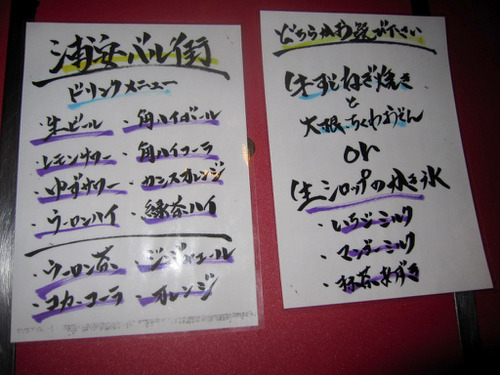 浦安バル街
ドリンクメニュー
・生ビール ・角ハイボール
・レモンサワー ・角ハイコーラ
・ゆずサワー ・カシスオレンジ
・ウーロンハイ ・緑茶ハイ
・ウーロン茶 ・ジンジャエール
・コカ・コーラ ・オレンジ
どちらかお選び下さい
牛すじねぎ焼き
と
大根ちくわうどん
or
生シロップのかき氷
・いちごミルク
・マンゴーミルク
・抹茶あずき